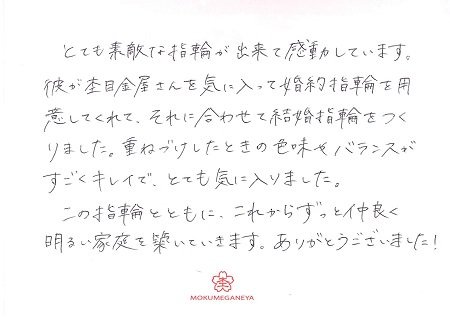 とても素敵な指輪が出来て感動しています。
彼が杢目金屋さんを気に入って婚約指輪を用
意してくれて、それに合わせて結婚指輪をつく
りました。重ねづけしたときの色味やバランスが
すごくキレイで、とても気に入りました。
この指輪とともに、これからずっと仲良く
明るい家庭を築いていきます。ありがとうございました!
杢
MOKUMEGANEYA